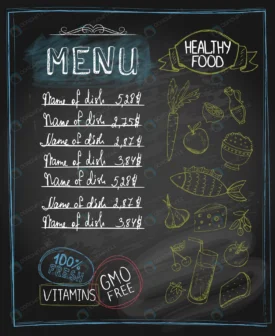 MENU
HEALTHY
FOOD
Name of dish 5,28$
Name of dish 2,75$
Name of dish 2,87$
Name of dish 3,84$
Name of dish 5,28$
Name of dish 2,87$
Name of dish 3,84$
100%
FRESH
VITAMINS
GMO
FREE